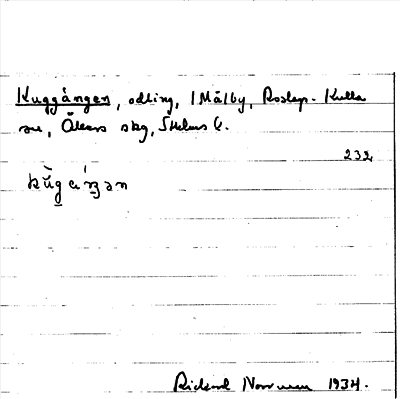 Kuggången, odling, 1 Målby, Roslags-Kulla
sn, Åkers skg, Sthlms l.
232
kùgáŋən
Rickard Norrman 1934.